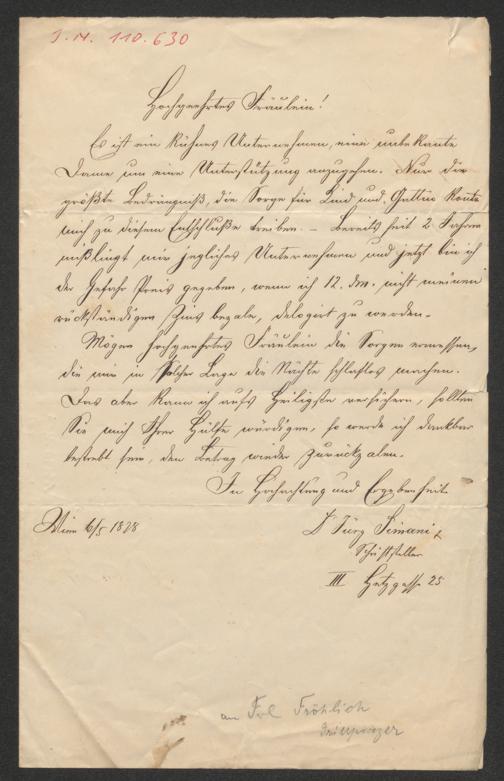 J.N. 110.630
Hochgeehrtes Fräulein!
Es ist ein kühnes Unternehmen, eine unbekannte
Dame um eine Unterstützung anzugehen. Nur die
größte Bedrängniß, die Sorge für Kind und Gattin konte
mich zu diesem Entschluße treiben. – Bereits seit 2 Jahren
mißlingt mir jegliches Unternehmen und jetzt bin ich
der Gefahr Preis gegeben, wenn ich 12. dM. nicht meinen
rückständigen Zins bezale, delogirt zu werden.
Mögen hochgeehrtes Fräulein die Sorgen ermessen,
die mir in solcher Lage die Nächte schlaflos machen.
Das aber kann ich aufs Heiligste versichern, sollten
Sie mich Ihrer Hülfe würdigen, so werde ich dankbar
bestrebt sein, den Betrag wieder zurückzalen.
In Hochachtung und Ergebenheit
Wien 6/5 1878
Dr Jürg Simani
Schriftsteller
III Hetzgasse 25
an Frl Fröhlich